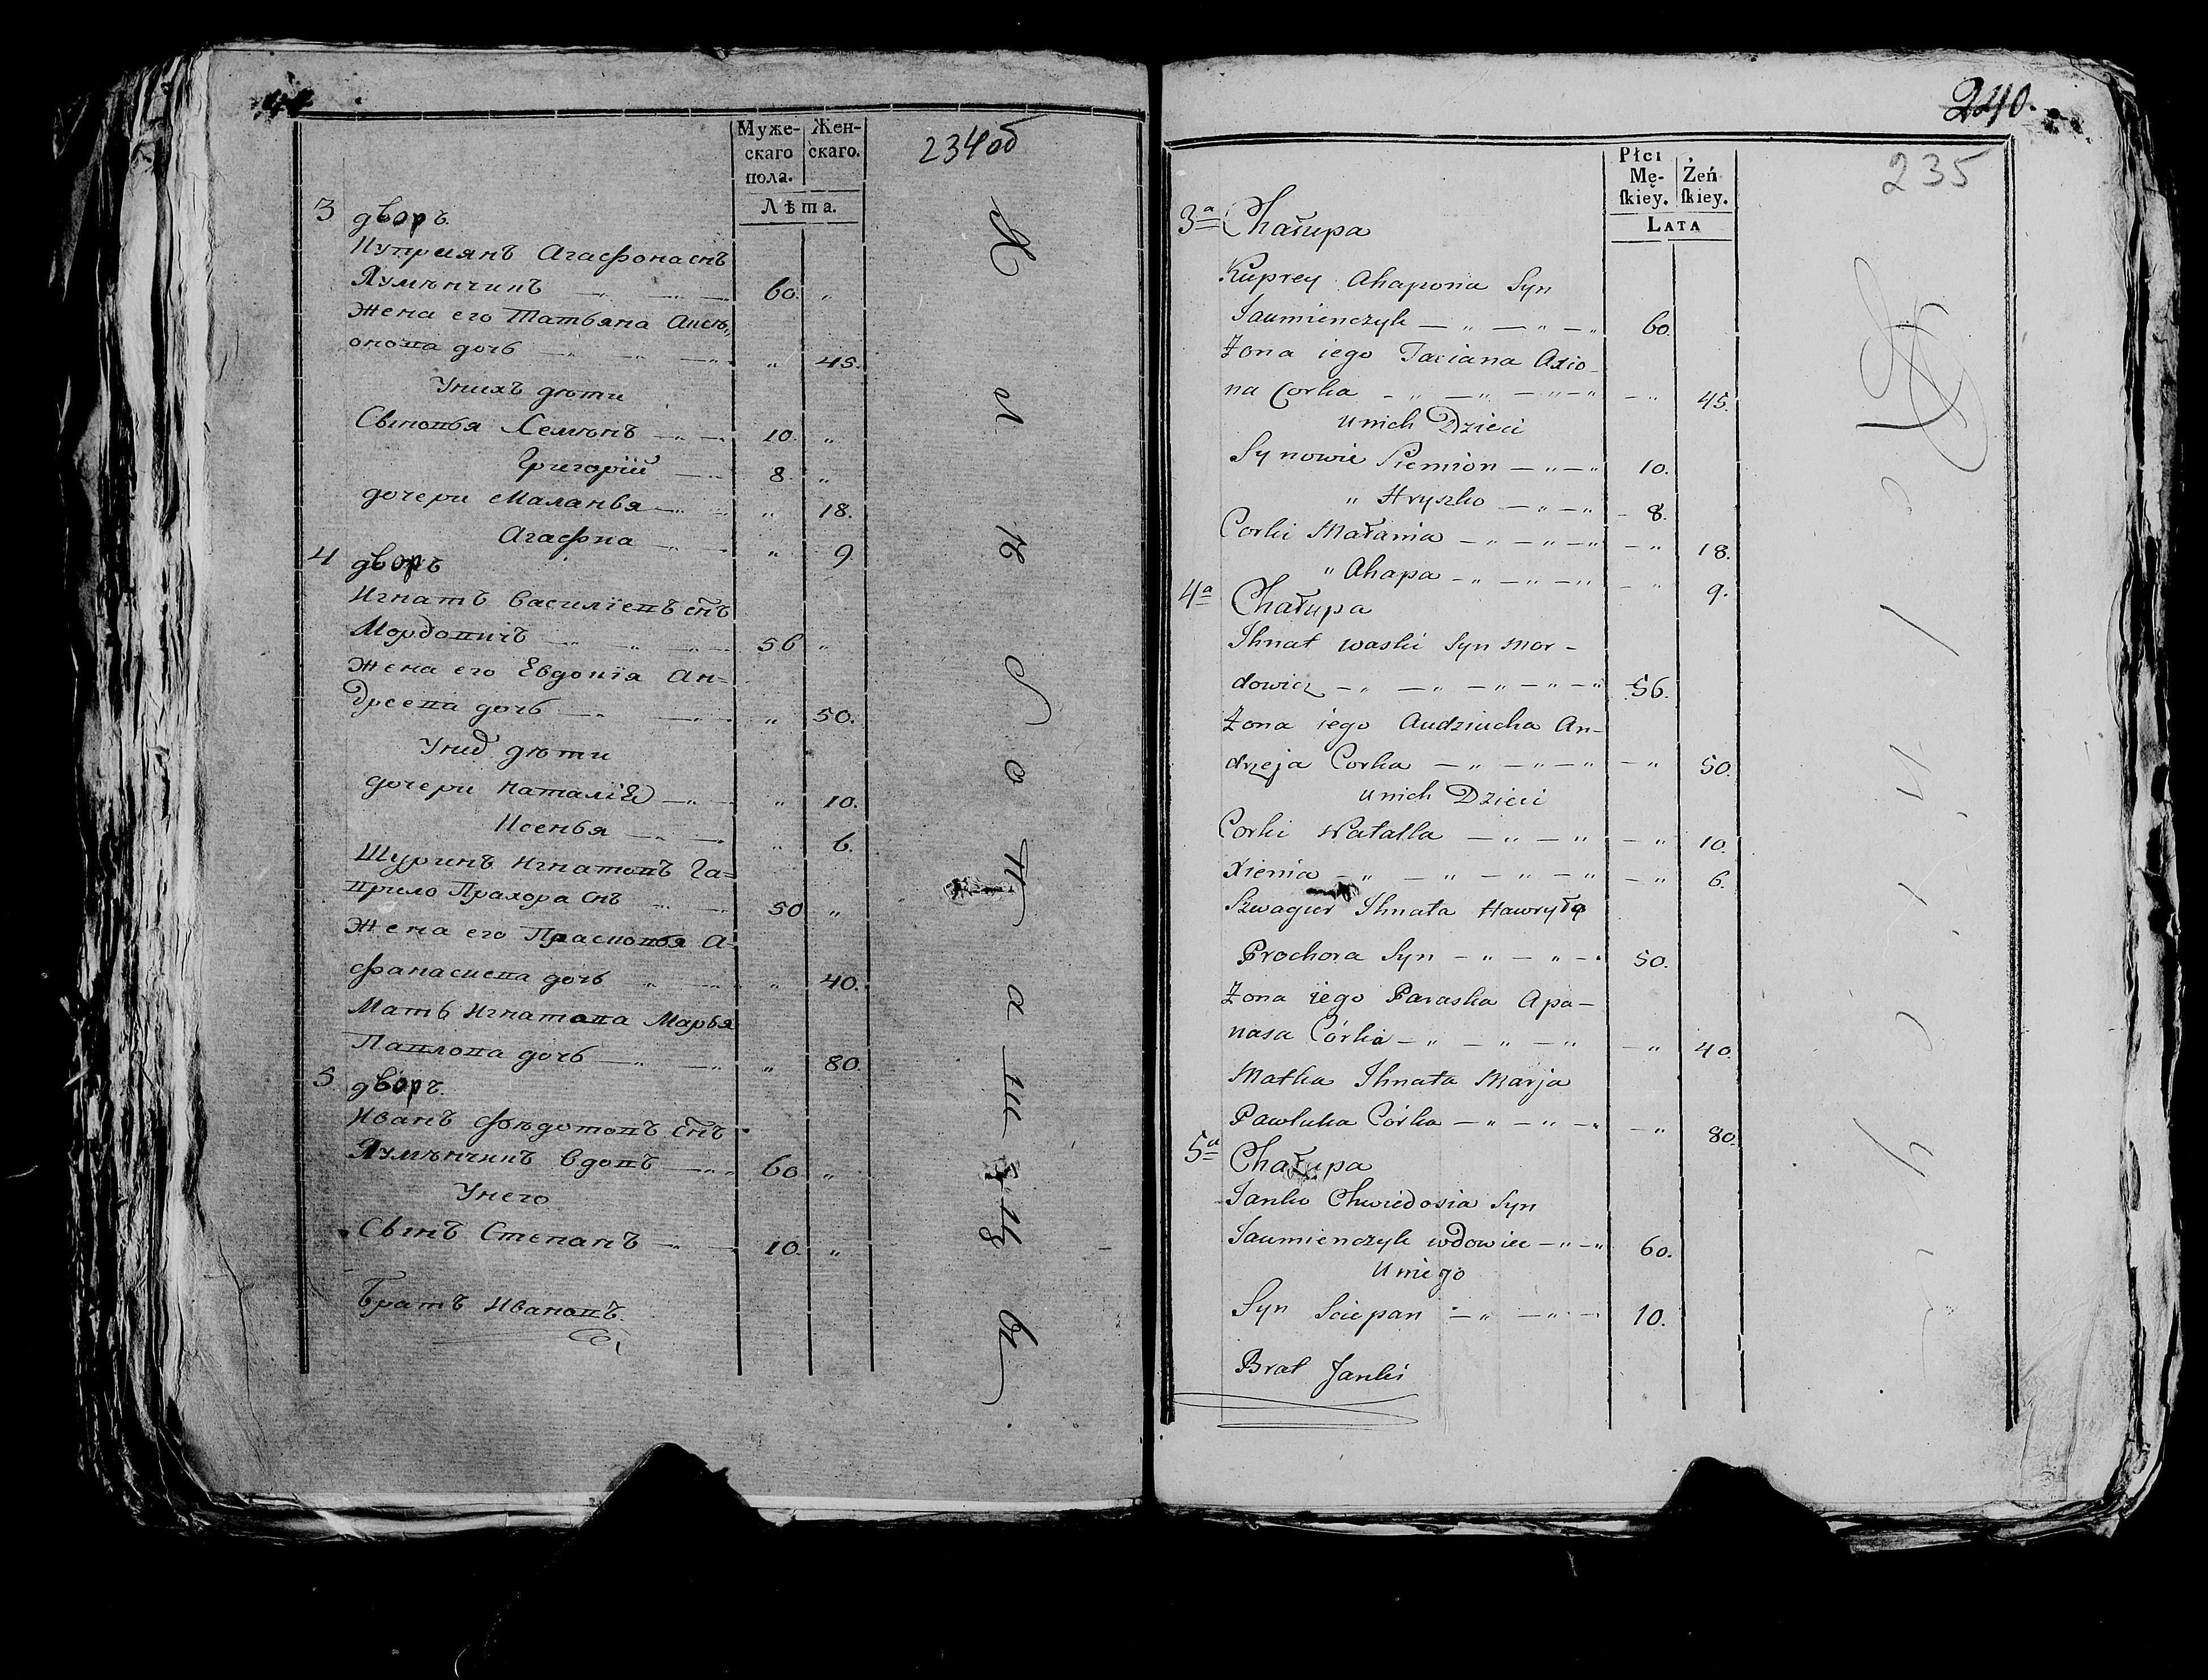 Муже-
скаго
пола.
Жен-
скаго.
Лѣта.
234об
3 дворъ
Купреянъ Агафона снъ
Яумѣнчикъ 60. „
Жена его Татьяна Аксю„
онова дочь „ 45.
У нихъ дѣти
Сыновья Семѣнъ 10. „
Григорій 8. „
дочери Маланья „ 18.
Агафиа „ 9.
4 дворъ
Игнатъ Василіевъ снъ
Мордовичъ 56 „
Жена его Евдокія Ан-
дреева дочь „ 50.
У нид дѣти
дочери Наталія „ 10.
Ксенья „ 6.
Шуринъ Игнатовъ Га=
врило Прахора снъ 50 „
Жена его Прасковья А-
фанасиева дочь „ 40.
Мать Игнатова Марья
Павлова дочь „ 80.
5 дворъ
Иванъ Фѣдотовъ снъ
Яумѣнчикъ вдовъ 60 „
У него
Сынъ Степанъ 10. „
Братъ Ивановъ
240.
235
Płci
Mę-
ſkiey.
Żeń
ſkiey.
LATA
3a Chałupa
Kuprey Ahapona Syn
Jaumienczyk — „ — „ — „ 60.
Żona iego Taciana Axio-
na Corka — „ — „ — „ — „ 45.
U nich Dzieci
Synowie Siemion — „ — „ 10.
„ Hryszko — „ — „ 8.
Corki Małania — „ — „ — „ — „ 18.
„ Ahapa — „ — „ — „ — „ 9.
4a Chałupa
Ihnat Waski Syn Mor-
dowicz — „ — „ — „ — „ 56.
Żona iego Audziucha An-
drzeja Corka — „ — „ — „ — „ 50.
U nich Dzieci
Corki Natalla — „ — „ — „ 10.
Xienia — „ — „ — „ — „ — „ 6.
Szwagier Ihnata Hawryło
Prochora Syn — „ — „ — 50.
Żona iego Paraska Apa-
nasa Córka — „ — „ — „ — „ 40.
Matka Ihnata Marja
Pawluka Córka — „ — „ — — „ 80.
5a Chałupa
Janko Chwiedosia Syn
Jaumienczyk wdowiec — „ — „ 60.
U niego
Syn Sciepan — „ — „ — 10.
Brat Janki